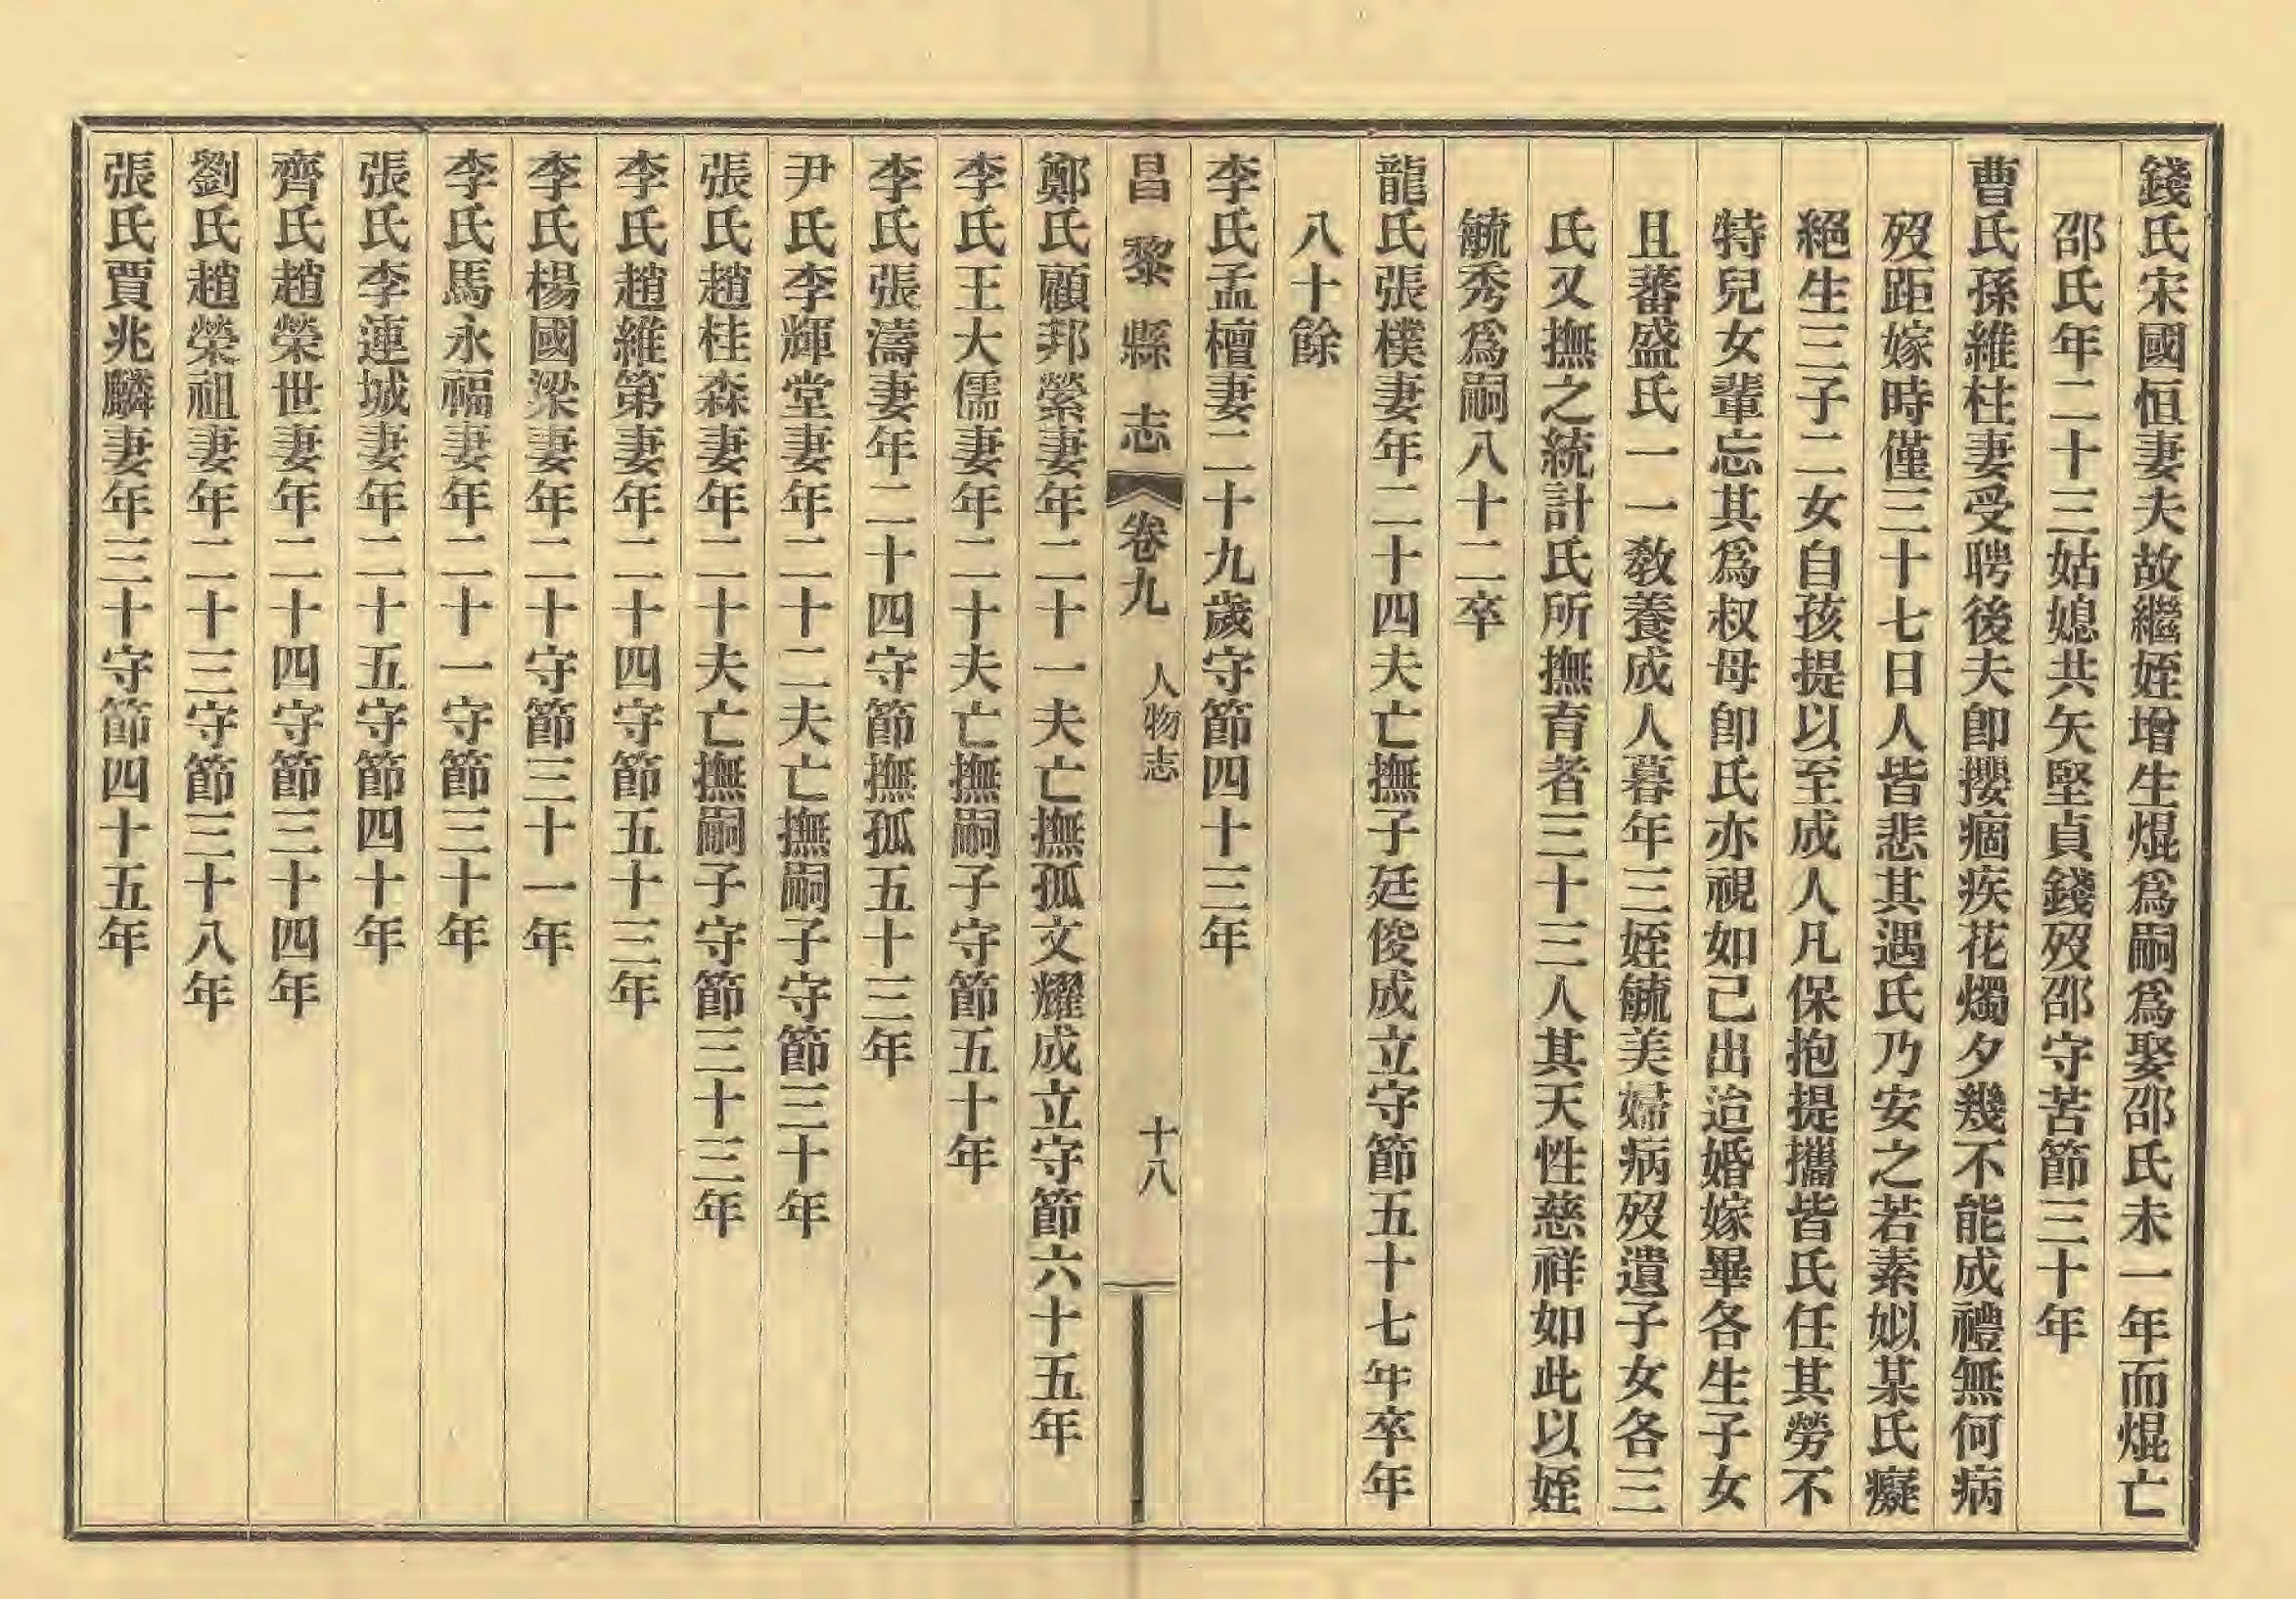 錢氏宋國恒妻夫故繼姪增生焜爲嗣爲娶邵氏未一年而焜亡
邵氏年二十三姑媳共矢堅貞錢歿邵守苦節三十年
曹氏孫維柱妻受聘後夫卽攖痼疾花燭夕幾不能成禮無何病
歿距嫁時僅三十七日人皆悲其遇氏乃安之若素姒某氏癡
絕生三子二女自孩提以至成人凡保抱提攜皆氏任其勞不
特兒女輩忘其爲叔母卽氏亦視如己出迨婚嫁畢各生子女
且蕃盛氏一一敎養成人暮年三姪毓美婦病歿遺子女各三
氏又撫之統計氏所撫育者三十三人其天性慈祥如此以姪
毓秀爲嗣八十二卒
龍氏張樸妻年二十四夫亡撫子廷俊成立守節五十七年卒年
八十餘
李氏孟檀妻二十九歲守節四十三年
昌黎縣志 卷九 人物志 十八
鄭氏顧邦縈妻年二十一夫亡撫孤文耀成立守節六十五年
李氏王大儒妻年二十夫亡撫嗣子守節五十年
李氏張濤妻年二十四守節撫孤五十三年
尹氏李輝堂妻年二十二夫亡撫嗣子守節三十年
張氏趙桂森妻年二十夫亡撫嗣子守節三十三年
李氏趙維第妻年二十四守節五十三年
李氏楊國梁妻年二十守節三十一年
李氏馬永福妻年二十一守節三十年
張氏李連城妻年二十五守節四十年
齊氏趙榮世妻年二十四守節三十四年
劉氏趙榮祖妻年二十三守節三十八年
張氏賈兆麟妻年三十守節四十五年